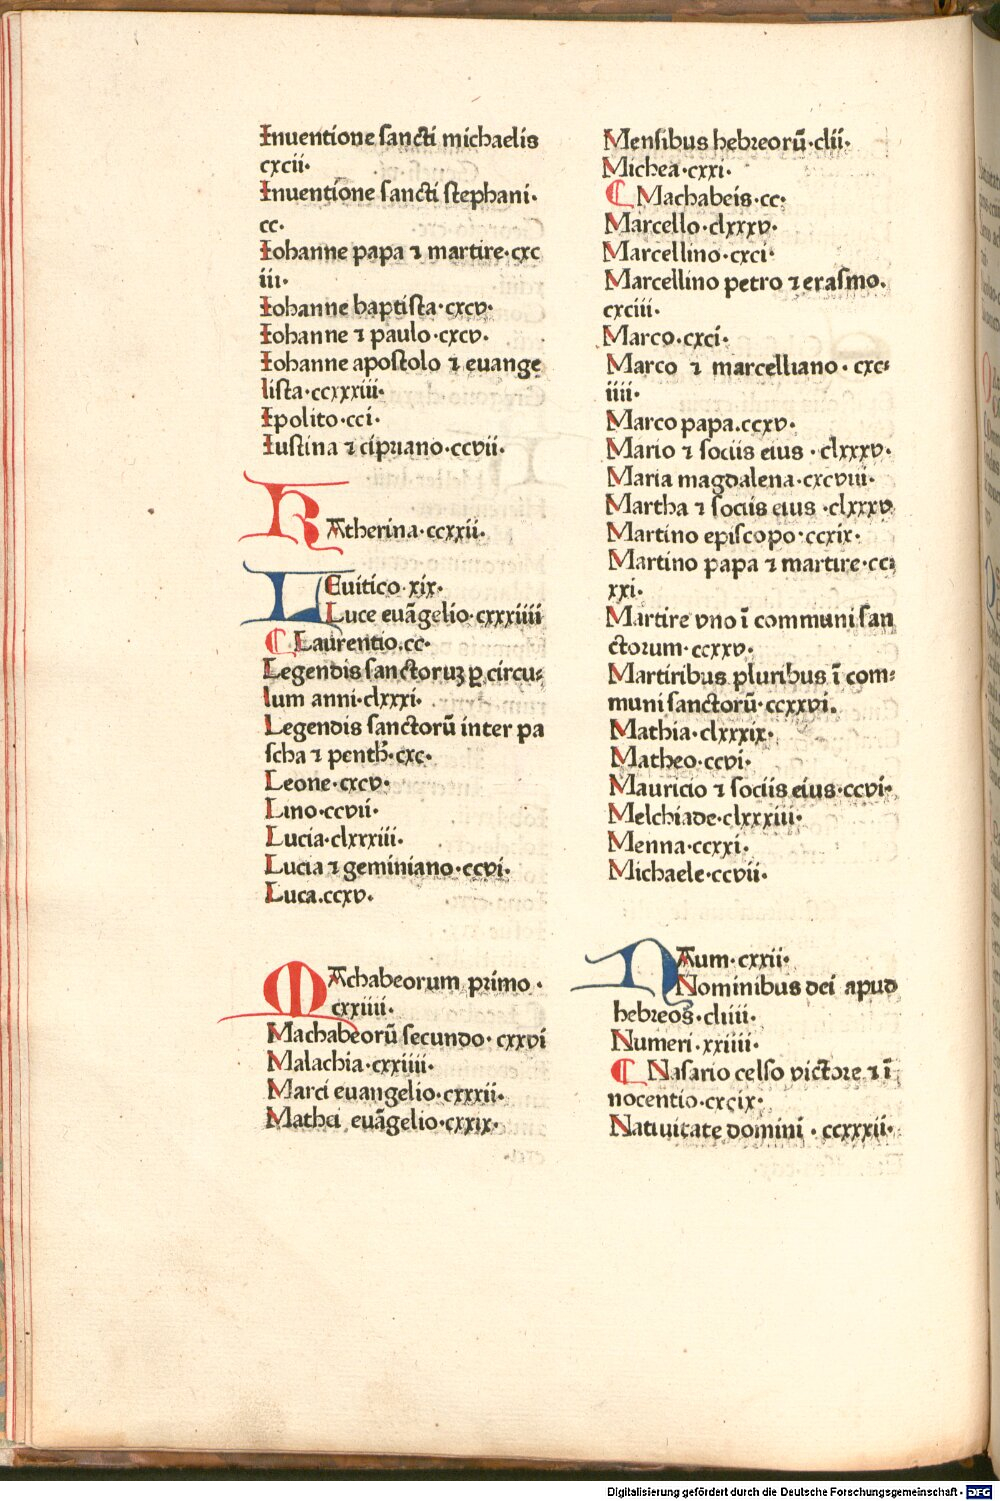 Inuentione sancti michaelis
cxcii·
Inuentione sancti stephani·
cc·
Iohanne papa ⁊ martire·cxc
iii·
Iohanne baptista·cxcv·
Iohanne ⁊ paulo·cxcv·
Iohanne apostolo ⁊ euange
lista·ccxxxiii·
Ipolito·cci·
Iustina ⁊ cipriano·ccvii·
KAtherina·ccxxii·
LEuitico·xix·
Luce euãgelio·cxxxiiii
Laurentio.cc·
Legendis sanctoruꝫ ꝑ circu⸗
lum anni·clxxxi·
Legendis sanctorũ inter pa
scha ⁊ penth̓·cxc·
Leone·cxcv·
Lino·ccvii·
Lucia·clxxxiii·
Lucia ⁊ geminiano·ccvi·
Luca.ccxv·
MAchabeorum primo·
cxxiiii·
Machabeorũ secundo·cxxvi
Malachia·cxxiiii·
Marci euangelio·cxxxii·
Mathei euãgelio·cxxix·
Mensibus hebreorũ·clii·
Michea·cxxi·
Machabeis·cc·
Marcello·clxxxv·
Marcellino·cxci·
Marcellino petro ⁊ erasmo.
cxciii·
Marco·cxci·
Marco ⁊ marcelliano·cxc⸗
iiii·
Marco papa.ccxv·
Mario ⁊ sociis eius·clxxxv·
Maria magdalena·cxcviii·
Martha ⁊ sociis eius·clxxxv
Martino episcopo·ccxix·
Martino papa ⁊ martire·cc⸗
xxi·
Martire vno ĩ communi san
ctorum·ccxxv·
Martiribus pluribus ĩ com⸗
muni sanctorũ·ccxxvi.
Mathia·clxxxix·
Matheo·ccvi·
Mauricio ⁊ sociis eius·ccvi·
Melchiade·clxxxiii·
Menna·ccxxi·
Michaele·ccvii·
NAum·cxxii·
Nominibus dei apud
hebreos·cliiii·
Numeri·xxiiii·
Nasario celso victore ⁊ ĩ
nocentio·cxcix·
Natiuitate domini·ccxxxii·
Digitalisierung gefördert durch die Deutsche Forschungsgemeinschaft · DFG